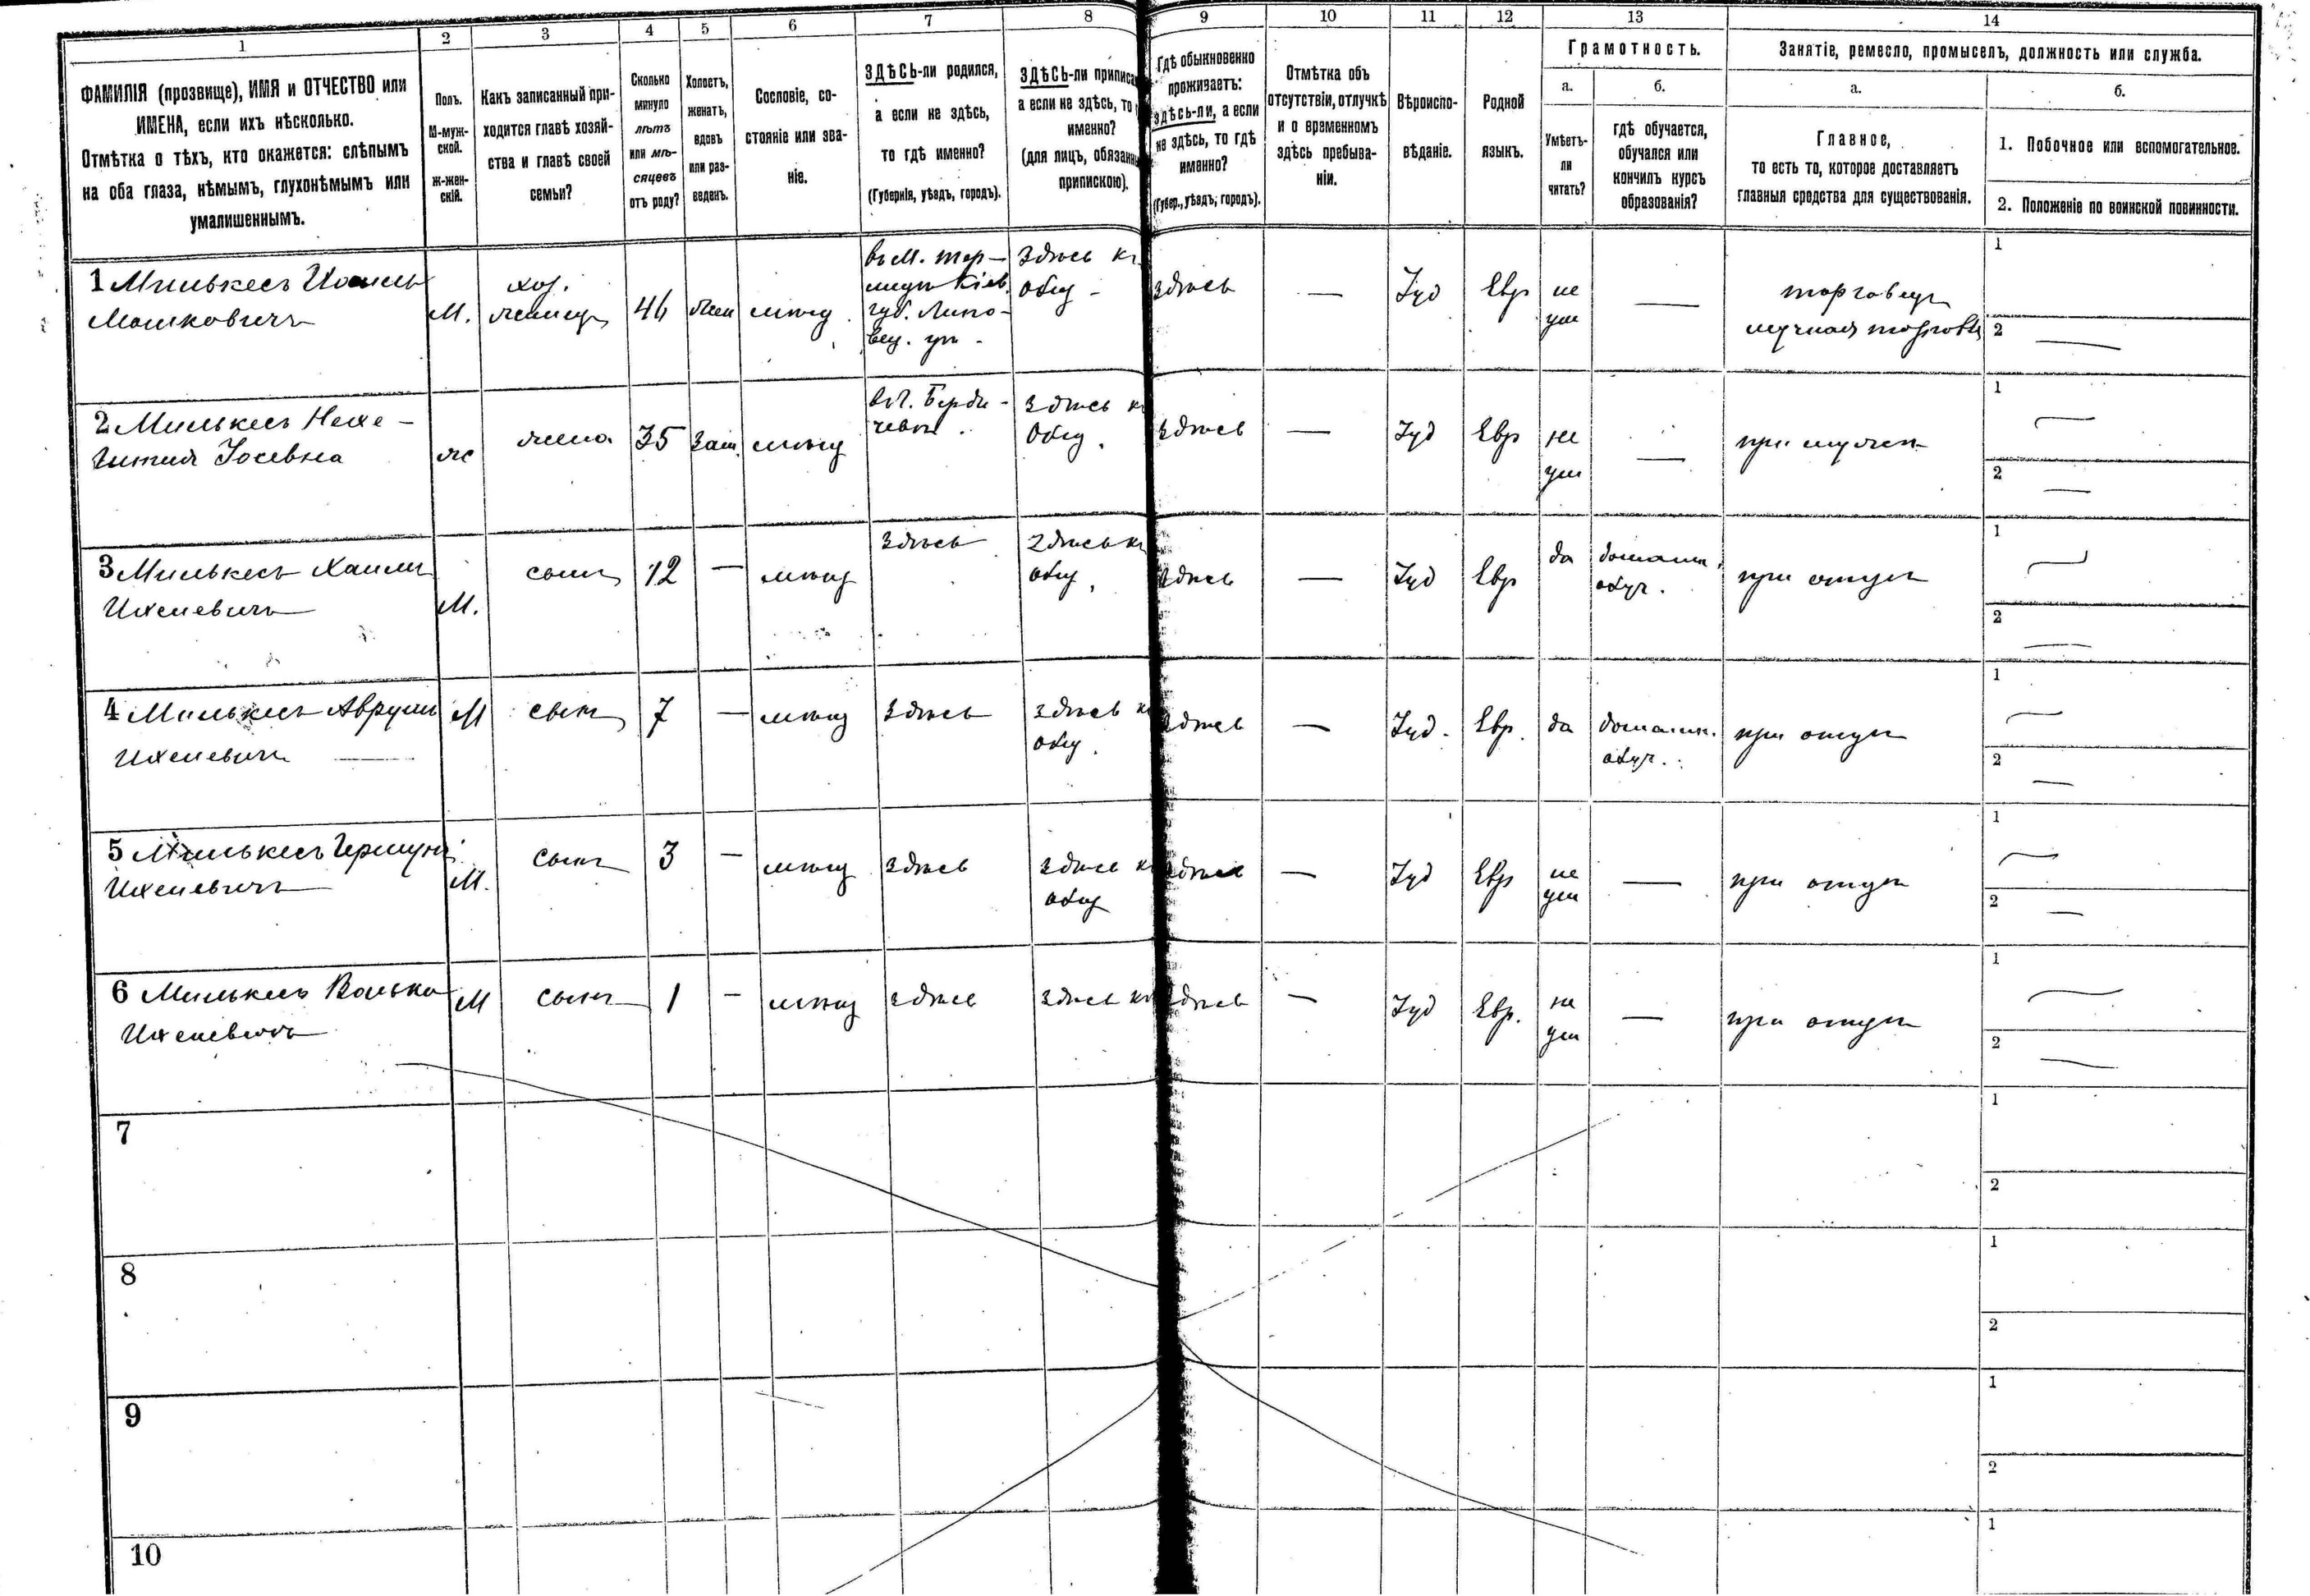 1 2 3 4 5 6 7 8 9 10 11 12 13 14
ФАМИЛІЯ (прозвище), ИМЯ и ОТЧЕСТВО или
ИМЕНА, если ихъ нѣсколько.
Отмѣтка о тѣхъ, кто окажется: слѣпымъ
на оба глаза, нѣмымъ, глухонѣмымъ или
умалишеннымъ.
Полъ.
М-муж-
ской.
Ж-жен-
скій.
Какъ записанный при-
ходится главѣ хозяй-
ства и главѣ своей
семьи?
Сколько
минуло
лѣтъ
или мѣ-
сяцевъ
отъ роду?
Холостъ,
женатъ,
вдовъ
или раз-
веденъ.
Сословіе, со-
стояніе или зва-
ніе.
ЗДѢСЬ-ли родился,
а если не здѣсь,
то гдѣ именно?
(Губернія, уѣздъ, городъ).
ЗДѢСЬ-ли приписа
а если не здѣсь, то
именно?
(для лицъ, обязанны
припискою).
Гдѣ обыкновенно
проживаетъ:
здѣсь-ли, а если
не здѣсь, то гдѣ
именно?
(Губер., уѣздъ, городъ).
Отмѣтка объ
отсутствіи, отлучкѣ
и о временномъ
здѣсь пребыва-
ніи.
Вѣроиспо-
вѣданіе.
Родной
языкъ.
Грамотность.
а.
Умѣетъ-
ли
читать?
б.
гдѣ обучается,
обучался или
кончилъ курсъ
образованія?
Занятіе, ремесло, промыселъ, должность или служба.
а.
Главное,
то есть то, которое доставляетъ
главныя средства для существованія.
б.
1. Побочное или вспомогательное.
2. Положеніе по воинской повинности.
1 Милькесъ
Мошковичъ
М.
хоз.
46
жен
мѣщ.
Кіев.
губ. Липо-
вец. уѣ-
здѣсь къ
общ-
здѣсь
—
Іуд
Евр
не
ум
—
торговец
1
2 —
2 Милькесъ
Іосевна
ж
жена
35
зам.
мѣщ
въ г. Берди-
чевѣ.
здѣсь к
общ.
здѣсь
—
Іуд
Евр
не
ум
—
при мужѣ
1 —
2 —
3 Милькесъ Хаимъ
Ихелевичъ
М.
сынъ
12
—
мѣщ
здѣсь
здѣсь къ
общ.
здѣсь
—
Іуд
Евр
да
домашн.
обуч.
при отцѣ
1 —
2 —
4 Милькесъ Аврумъ
Ихелевичъ
М
сынъ
7
—
мѣщ
здѣсь
здѣсь к
общ.
здѣсь
—
Іуд.
Евр.
да
домашн.
обуч.
при отцѣ
1 —
2 —
5 Милькесъ
Ихелевичъ
М.
сынъ
3
—
мѣщ
здѣсь
здѣсь к
общ
здѣсь
—
Іуд
Евр
не
ум
—
при отцѣ
1 —
2 —
6 Милькесъ Волько
Ихелевичъ
М
сынъ
1
—
мѣщ
здѣсь
здѣсь къ
здѣсь
—
Іуд
Евр.
не
ум
—
при отцѣ
1 —
2 —
7
1
2
8
1
2
9
1
2
10
1